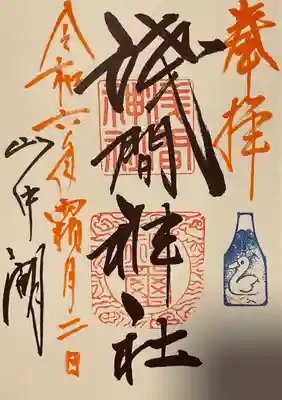 奉拝
浅間神社
浅間神社
令和六年霜月二日
山中湖